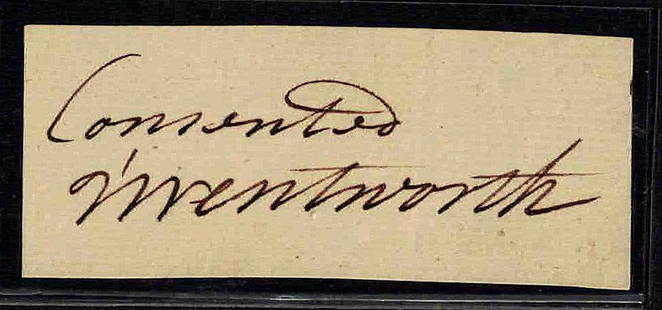 Consented
J Wentworth